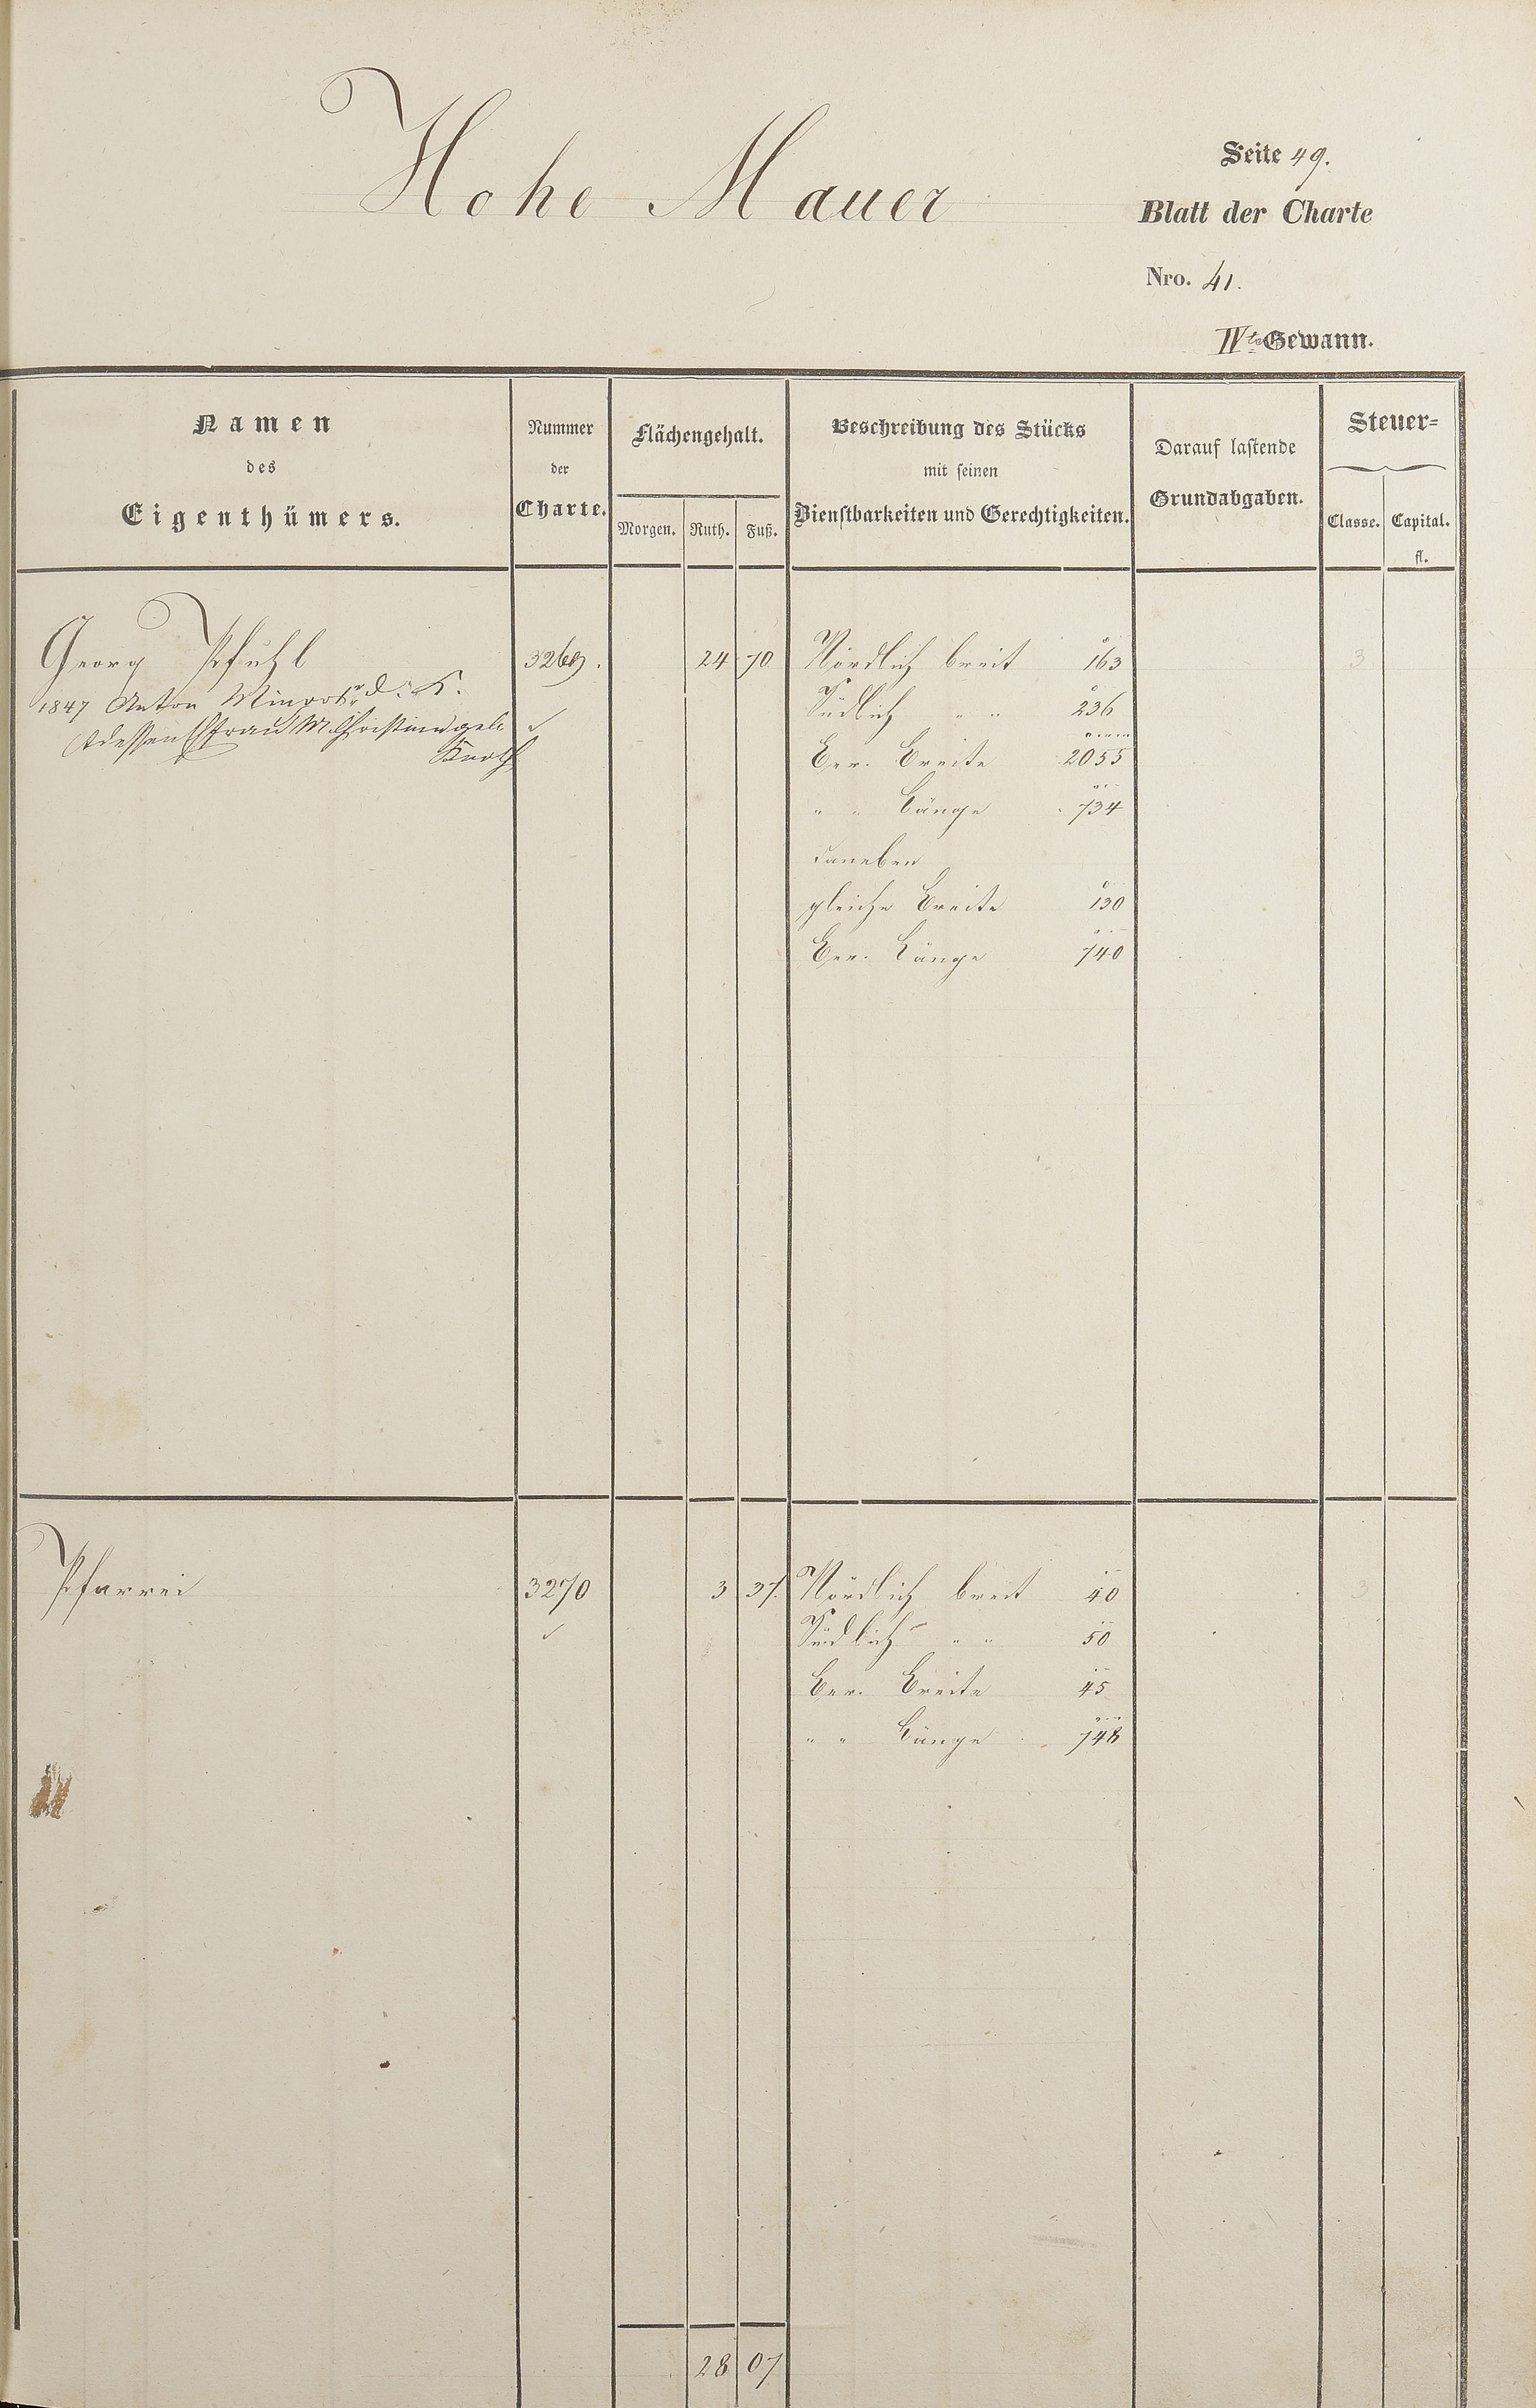 Hohe Mauer
Seite 49.
Blatt der Charte
Nro. 41.
IVte Gewann.
Namen
des
Eigenthümers.
Nummer
der
Charte.
Flächengehalt.
Morgen. Ruth. Fuß.
Beschreibung des Stücks
mit seinen
Dienstbarkeiten und Gerechtigkeiten.
Darauf lastende
Grundabgaben.
Steuer-
Classe. Capital.
fl.
Georg Pfuhl 3269. 24 70 Nördlich breit 163 3
1847 Anton d. K.
Südlich " " 236
dessen Ehefrau M. Christina geb.
Knoth
Ber. Breite 2055
" " Länge 734
daneben
gleiche Breite 130
Ber. Länge 740
Pfarrei 3270 3 37. Nördlich breit 40 3
Südlich " " 50
Ber. Breite 45
" " Länge 748
28 07